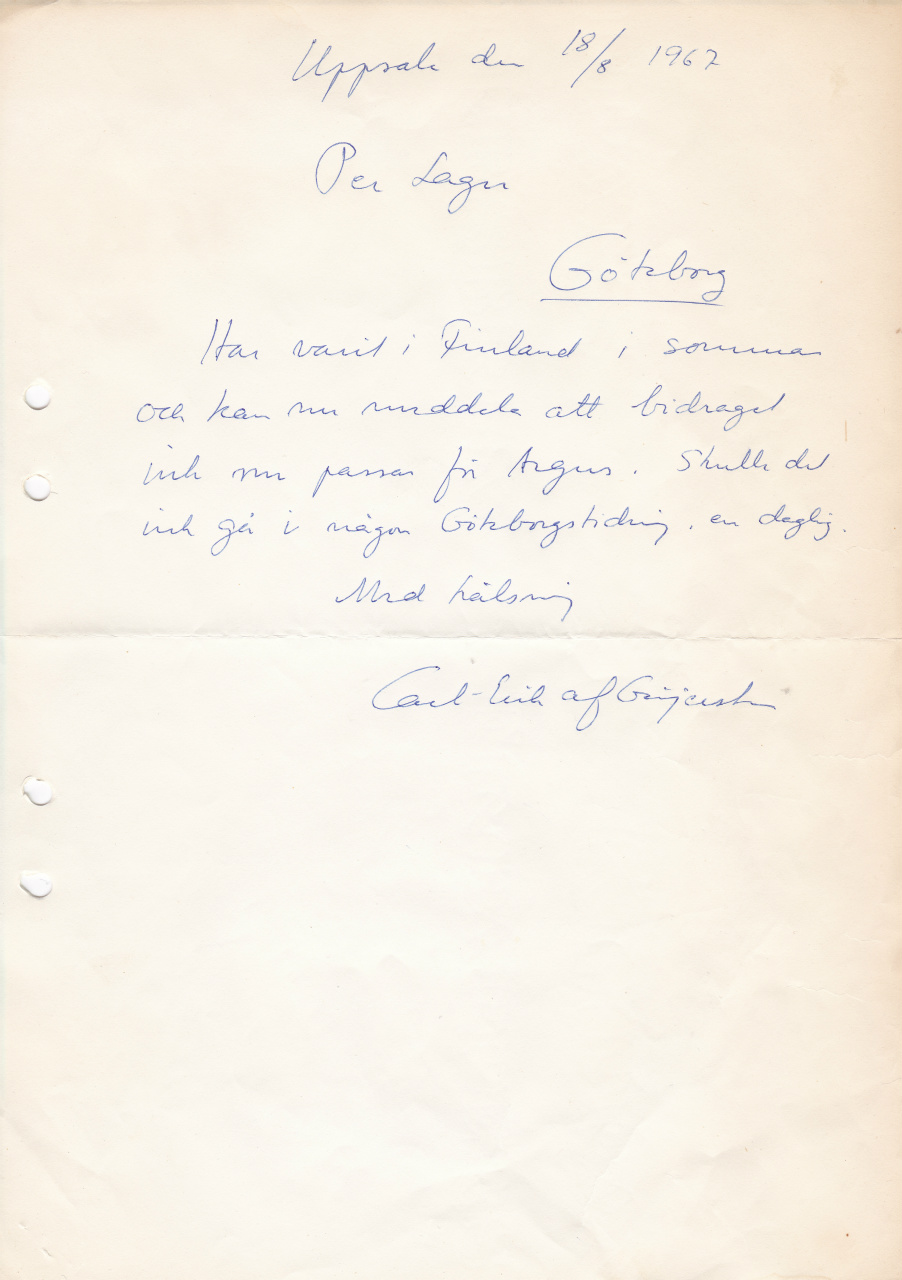 Uppsala den 18/8 1967
Per Lager
Göteborg
Har varit i Finland i sommar
och kan nu meddela att bidraget
inte nu passar för Argus. Skulle det
inte gå i någon Göteborgstidning, en daglig.
Med hälsning
Carl-Erik af Geijerstam